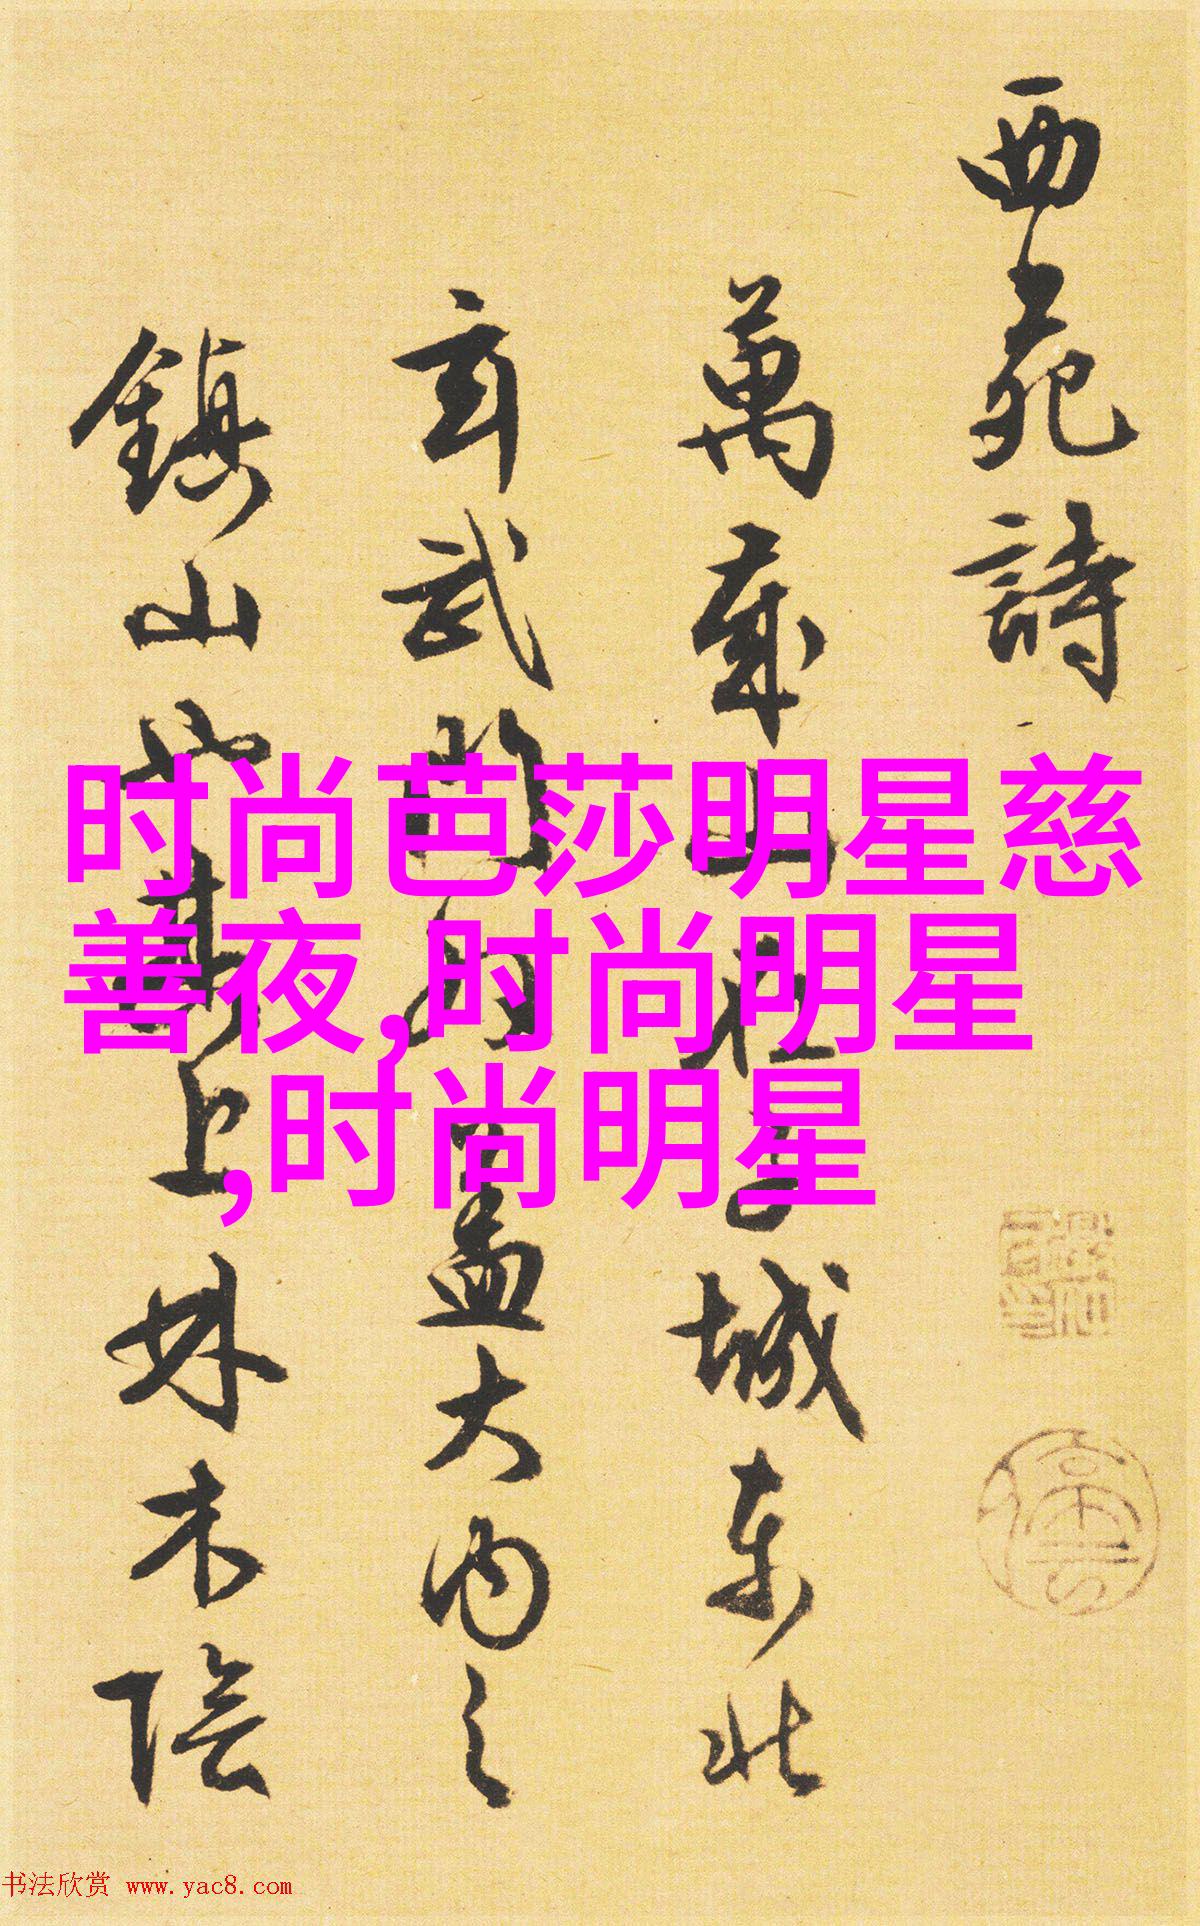 西苑詩
萬歲山在子城東北
玄武門外蓋大內之
鎮山也其上林木陰
时尚芭莎明星慈
善夜,时尚明星
,时尚明星
书法欣赏 www.yac8.com